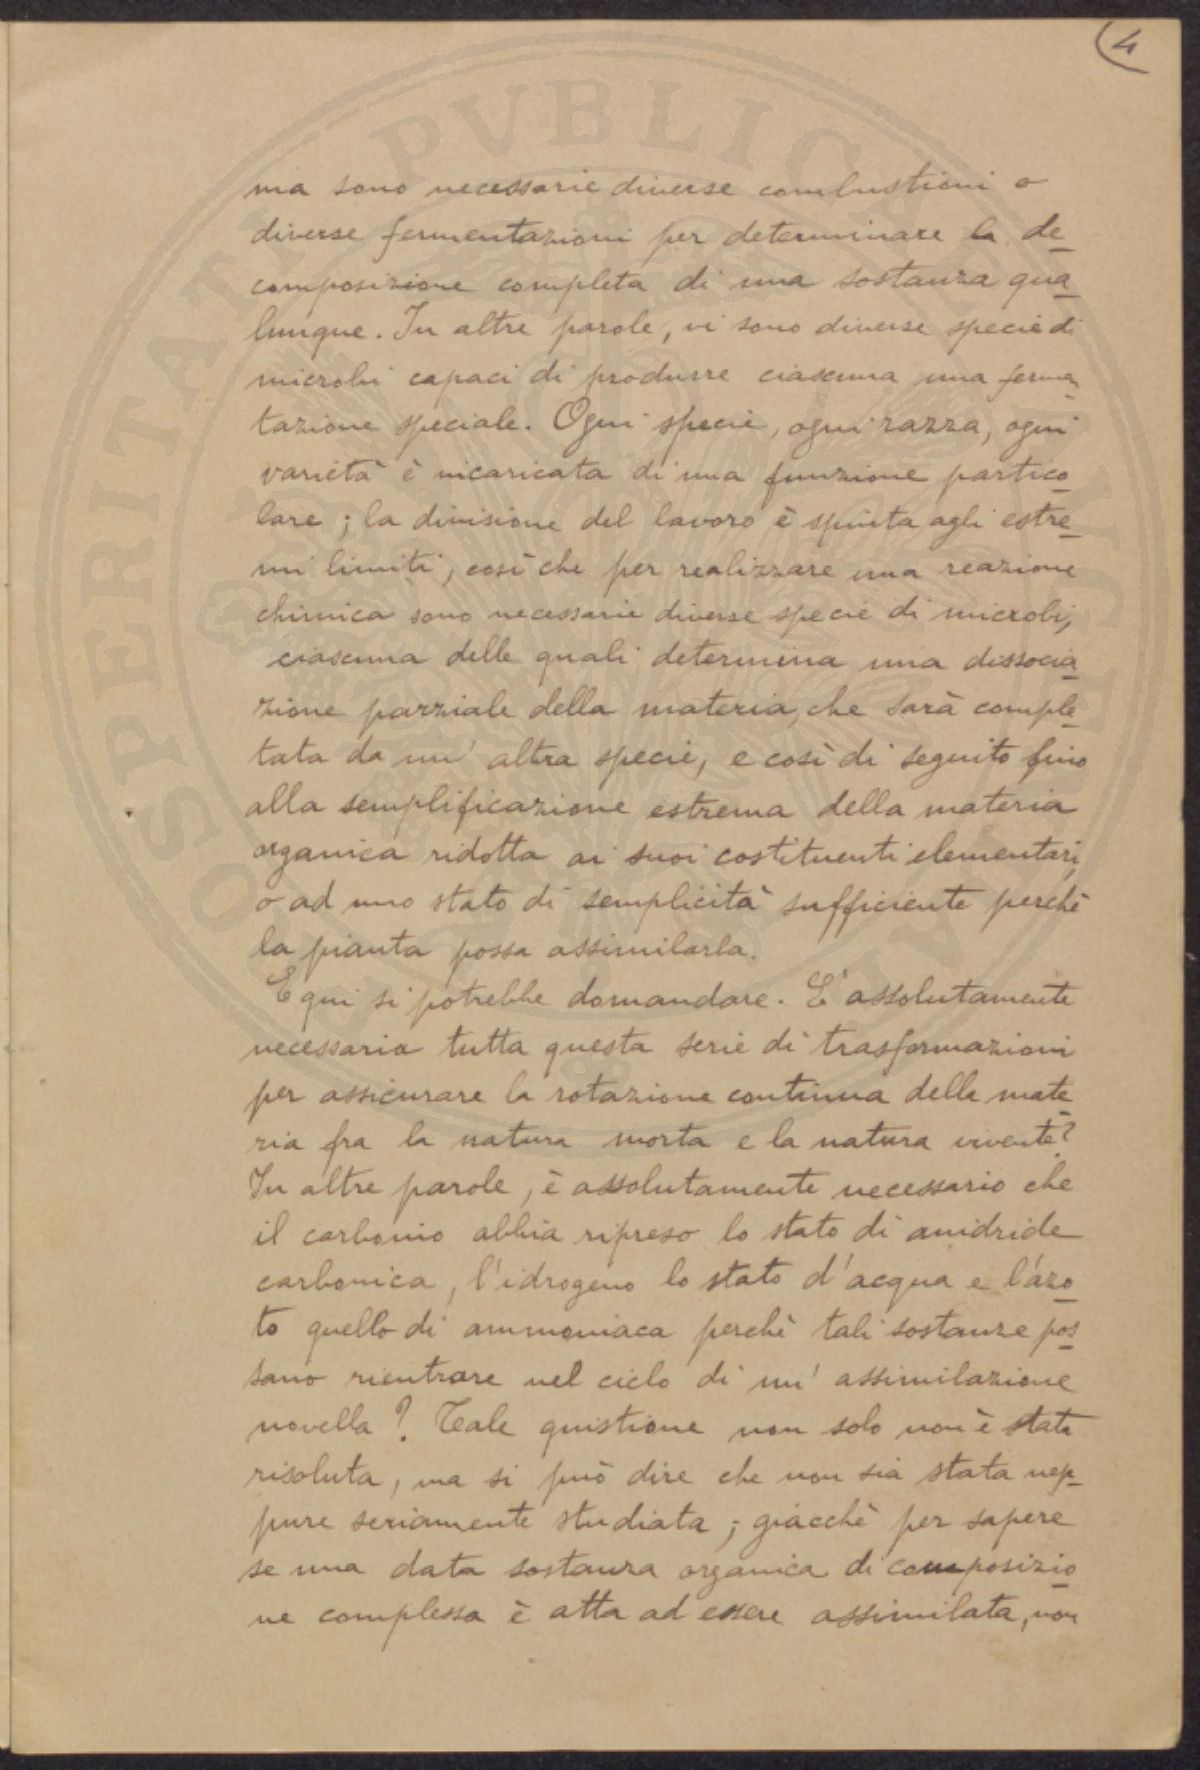 4
ma sono necessarie diverse combustioni o
diverse fermentazioni per determinare la de
composizione completa di una sostanza qua
lunque. In altre parole, vi sono diverse specie di
microbi capaci di produrre ciascuna una fermen
tazione speciale. Ogni specie, ogni razza, ogni
varietà è incaricata di una funzione partico
lare; la divisione del lavoro è spinta agli estre
mi limiti, così che per realizzare una reazione
chimica sono necessarie diverse specie di microbi,
ciascuna delle quali determina una dissocia
zione parziale della materia, che sarà comple
tata da un' altra specie, e così di seguito fino
alla semplificazione estrema della materia
organica ridotta ai suoi costituenti elementari,
o ad uno stato di semplicità sufficiente perchè
la pianta possa assimilarla.
E qui si potrebbe domandare. E' assolutamente
necessaria tutta questa serie di trasformazioni
per assicurare la rotazione continua della mate
ria fra la natura morta e la natura vivente?
In altre parole, è assolutamente necessario che
il carbonio abbia ripreso lo stato di anidride
carbonica, l'idrogeno lo stato d'acqua e l'azo
to quello di ammoniaca perchè tali sostanze pos
sano rientrare nel ciclo di un' assimilazione
novella? Tale quistione non solo non è stata
risoluta, ma si può dire che non sia stata nep
pure seriamente studiata; giacchè per sapere
se una data sostanza organica di composizio
ne complessa è atta ad essere assimilata, non